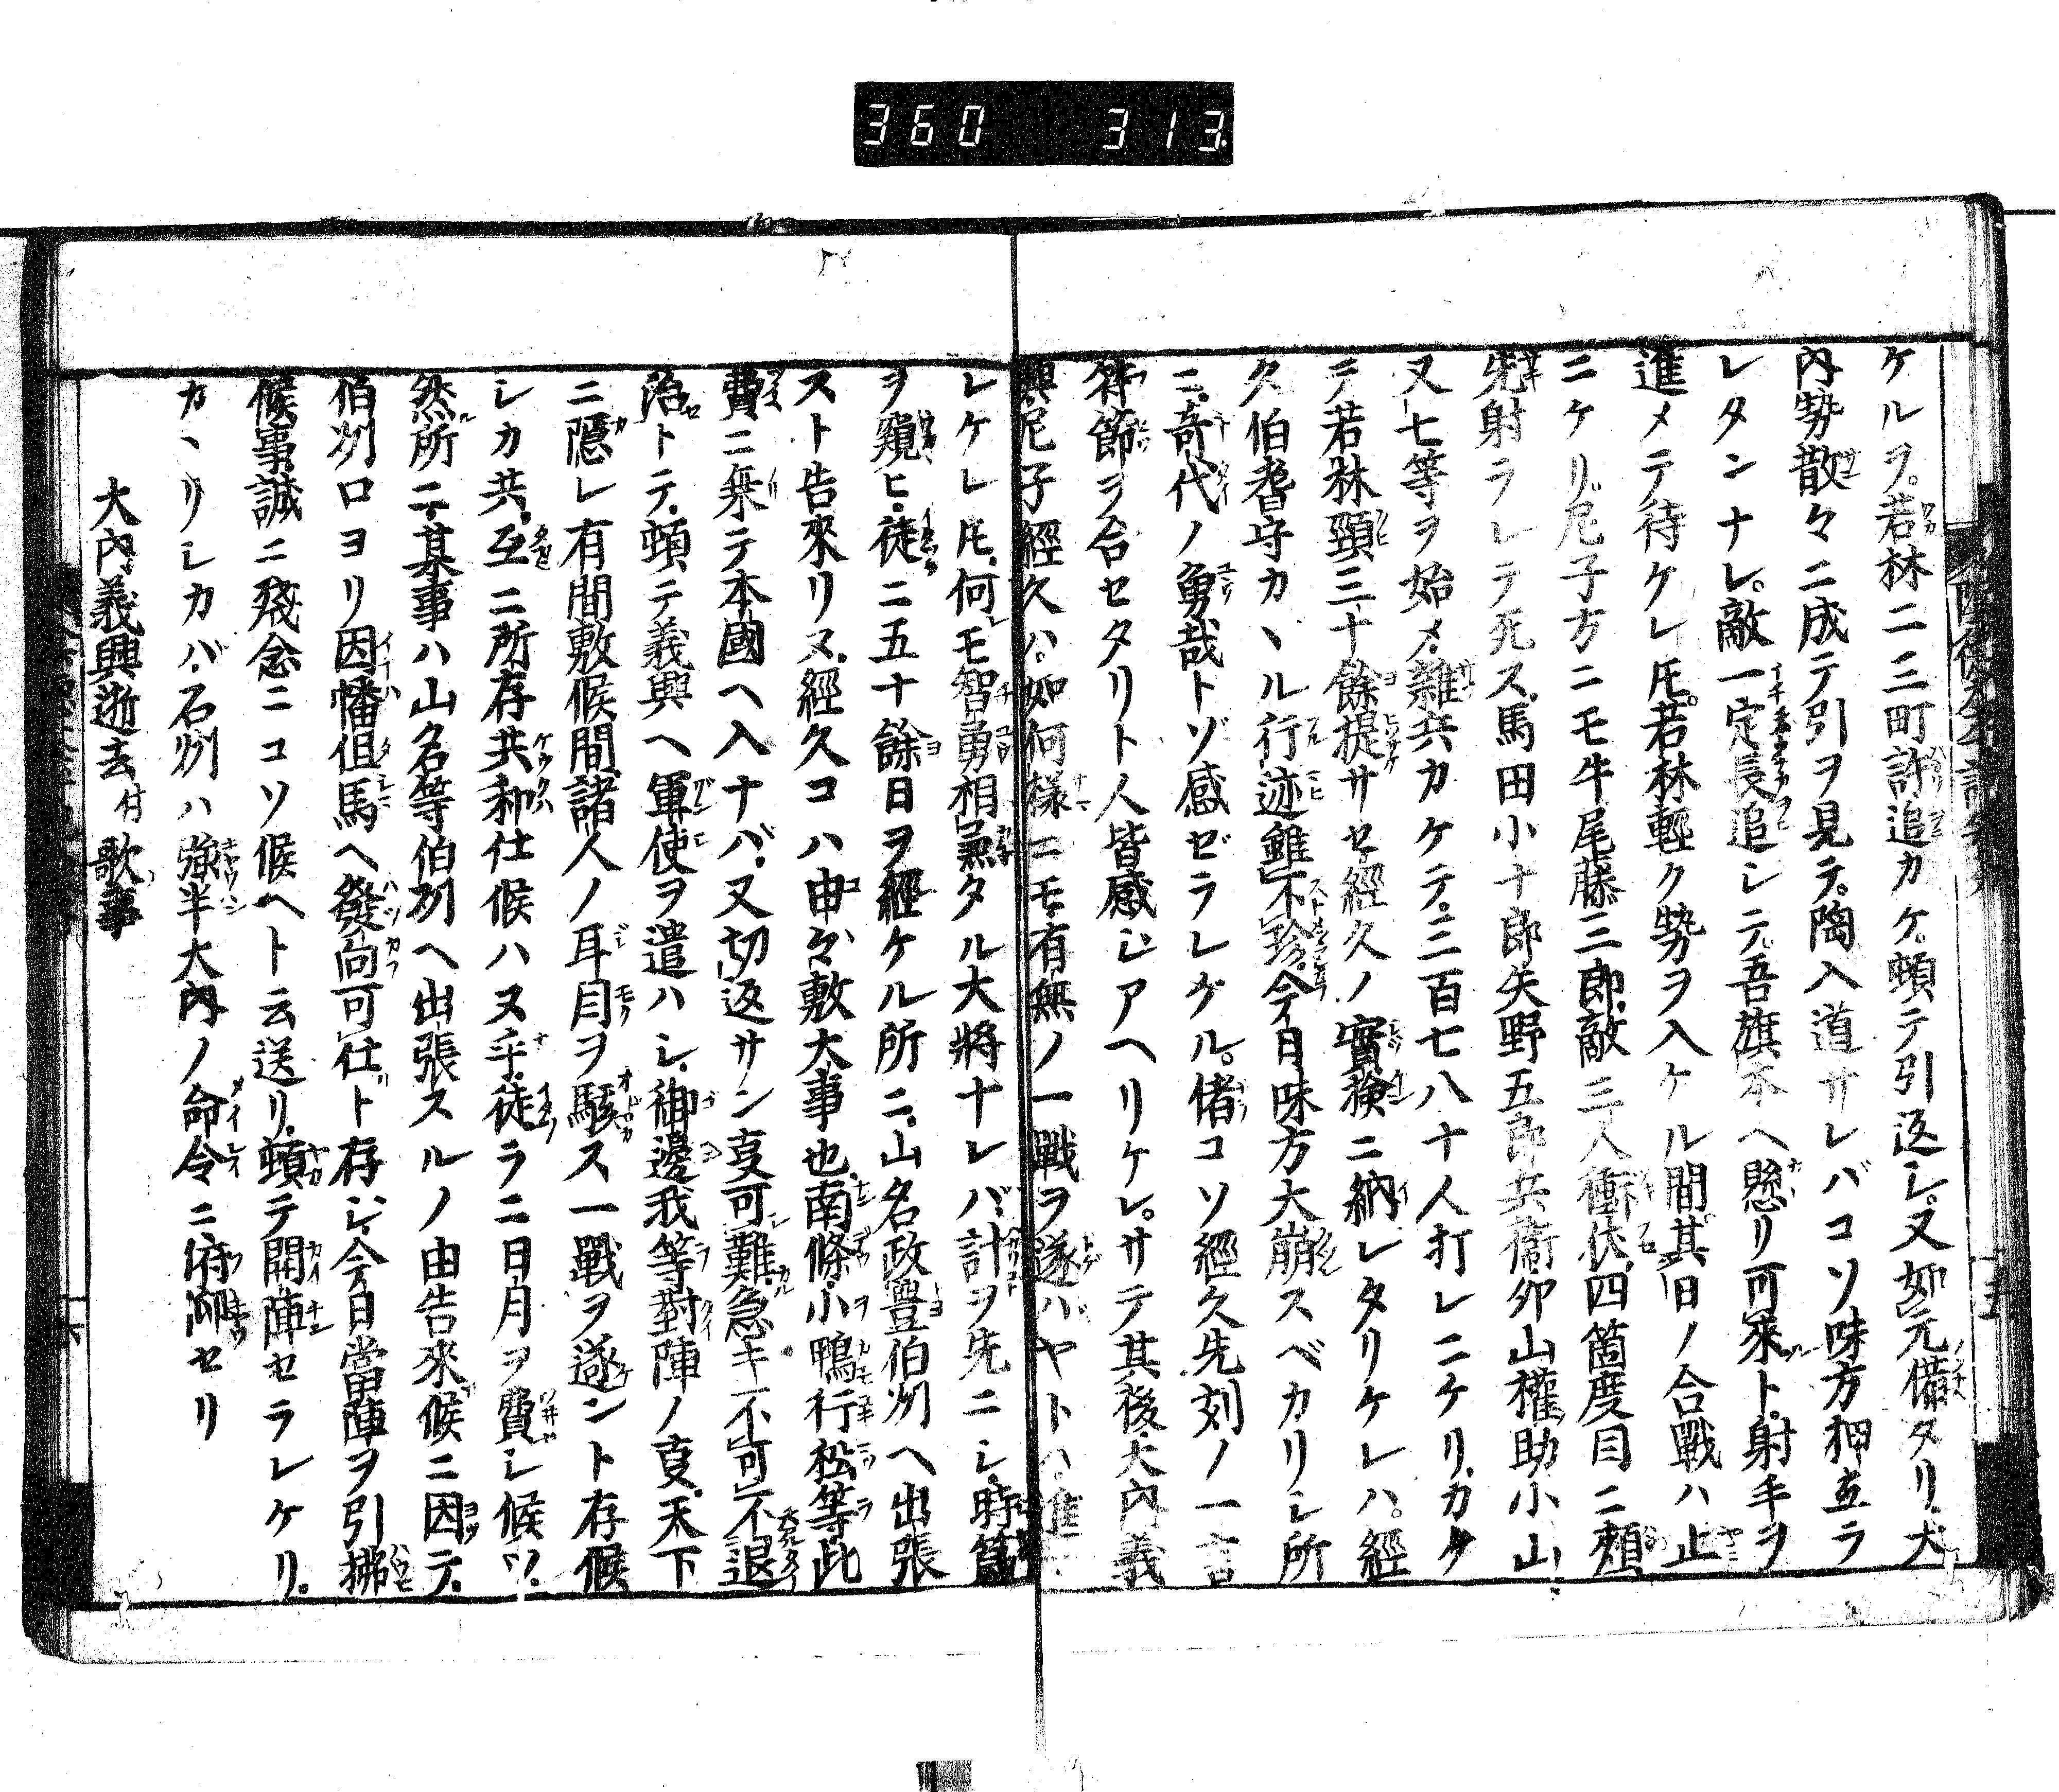 360 313
ケルヲ。若林二三町許追カケ。頓テ引返シ。又如元備タリ。大
内勢散々ニ成テ引ヲ見テ。陶入道サレバコソ味方押立ラ
レタンナレ。敵一定長追シテ。吾旗本ヘ懸リ可来ト。射手ヲ
進メテ待ケレ𪜈。若林軽ク勢ヲ入ケル間其日ノ合戰ハ止
ニケリ。尼子方ニモ牛尾藤三郎。敵三人衝伏。四箇度目ニ頬
先射ラレテ死ス。馬田小十郎矢野五郎兵衛卯山權助小山
又七等ヲ始メ。雜兵カケテ。三百七八十人打レニケリ。カク
テ若林頸三十餘提サセ。經久ノ實検ニ納レタリケレハ。經
久伯耆守カヽル行迹雖不珍。今日味方大崩スベカリシ所
ニ。奇代ノ勇哉トゾ感ゼラレケル。偖コソ經久先刻ノ一言
符節ヲ合セタリト人皆感シアヘリケレ。サテ其後大内義
興尼子經久ハ。如何樣ニモ有無ノ一戰ヲ遂ハヤトハ進
レケレ𪜈。何モ智勇相兼タル大將ナレバ。計ヲ先ニシ。時節
ヲ窺ヒ。徒ニ五十餘日ヲ經ケル所ニ。山名政豊伯州ヘ出張
スト告來リヌ。經久コハ由々敷大事也。南條小鴨行松等此
費ニ乗テ本國ヘ入ナバ。又切返サン叓可難。急キ不可不退
治トテ。頓テ義興ヘ軍使ヲ遣ハシ。御邊我等對陣ノ叓。天下
ニ隱レ有間敷候間。諸人ノ耳目ヲ駭ス一戰ヲ遂ント存候
シカ共。互ニ所存共和仕候ハヌ乎。徒ラニ日月ヲ費シ候ツ。
然所ニ。某事ハ山名等伯州ヘ出張スルノ由告來候ニ因テ。
伯州口ヨリ因幡但馬ヘ發向可仕ト存シ。今日當陣ヲ引拂
候事誠ニ殘念ニコソ候ヘト云送リ。頓テ開陣セラレケリ。
カヽリシカバ。石州ハ強半大内ノ命令ニ府仰セリ
大内義興逝去付歌事